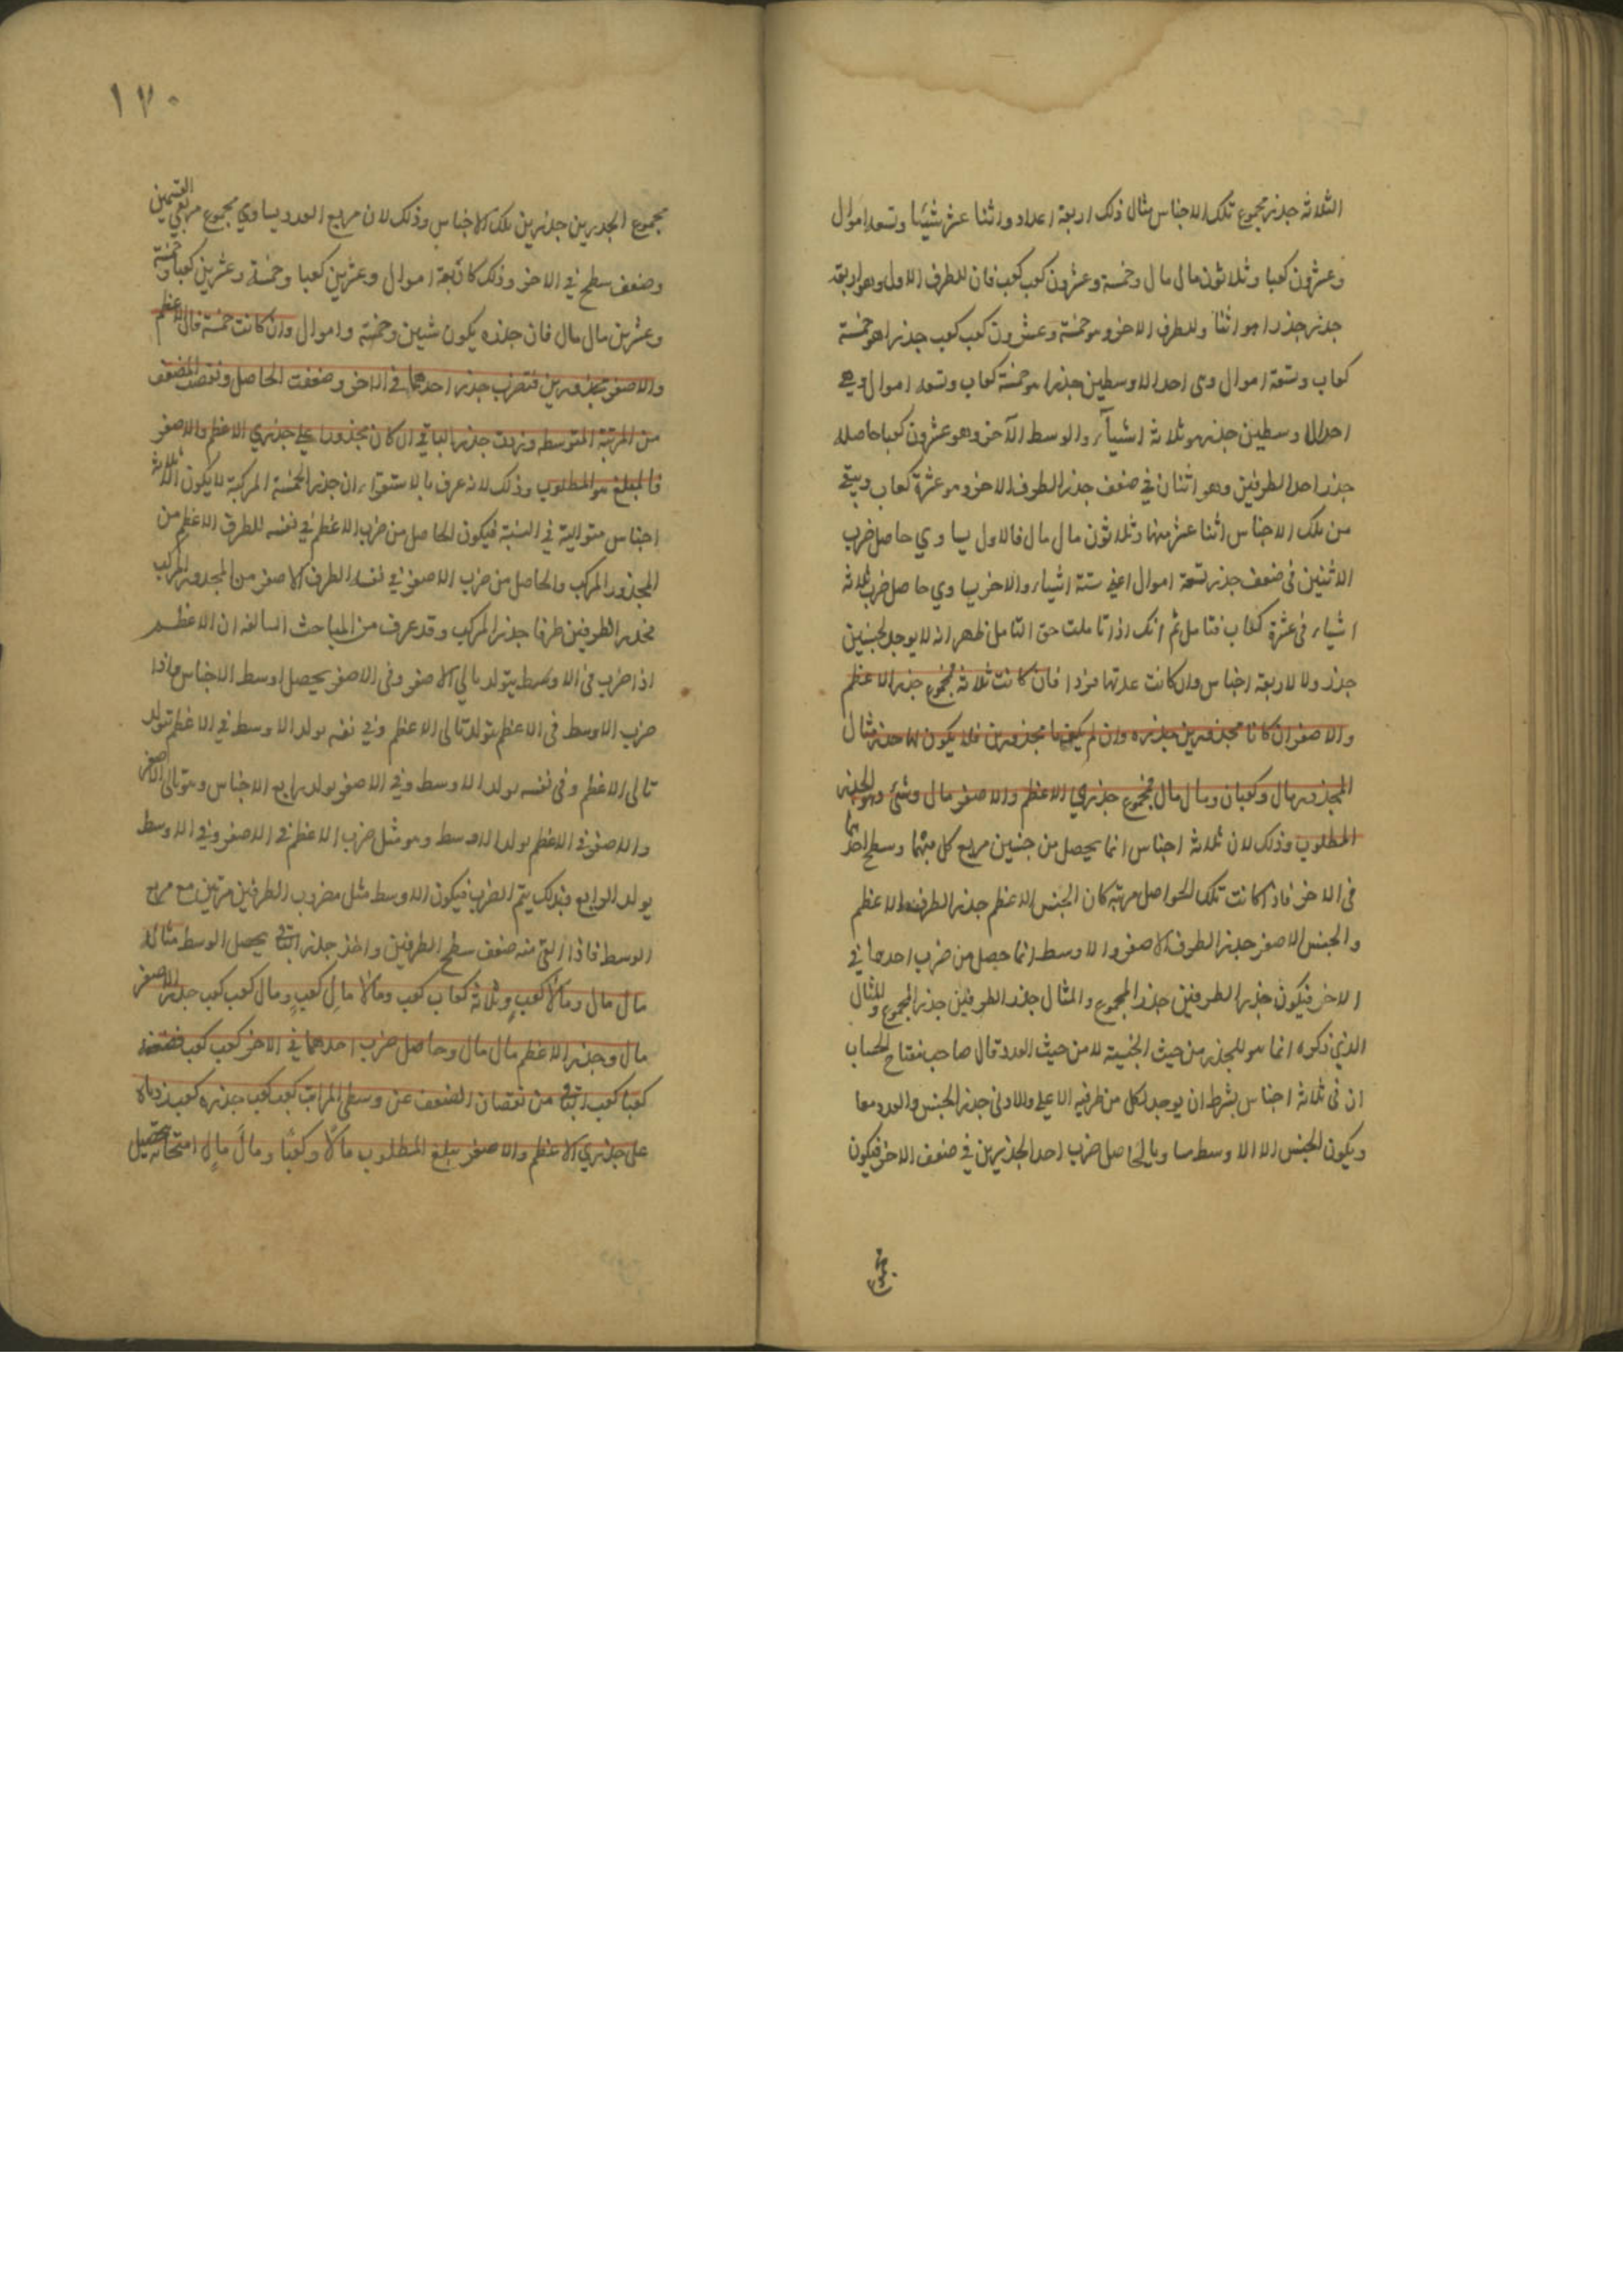 الثلاثة جذر مجموع تلك الاجناس مثال ذلك اربعة اعداد واثنا عشر شيئا وتسعة اموال
وعشرون كعبا وثلاثون مال مال وخمسة وعشرون كعب كعب فان للطرف الاول وهو اربعة
جذر جذرا هو اثنا وللطرف الاخر وهو خمسة وعشرون كعب كعب جذرا هو خمسة
كعاب وتسعة اموال وهى احد الاوسطين جذرا هو خمسة كعاب وتسعة اموال وهي
احد الاوسطين جذره هو ثلاثة اشيآء والوسط الآخر وهو عشرون كعبا حاصله
جذر احد الطرفين وهو اثنان في ضعف جذر الطرف الاخر وهو عشرة كعاب ويبقى
من تلك الاجناس اثنا عشر منها وثلاثون مال مال فالاول يساوي حاصل ضرب
الاثنين فى ضعف جذر تسعة اموال اعني ستة اشياء والاخر يساوي حاصل ضرب ثلاثة
اشياء فى عشرة كعاب فتامل ثم انك اذا تاملت حق التامل ظهر انه لا يوجد لجنسين
جذر ولا لاربعة اجناس وان كانت عدتها فردا فان كانت ثلاثة فمجموع جذر الاعظم
والاصغر ان كانا مجذورين جذره وان لم يكونا مجذورين فلا يكون لها جذر مثال
المجذور مال وكعبان ومال مال فمجموع جذري الاعظم والاصغر مال وشئ وهو الجذر
المطلوب وذلك لان ثلاثة اجناس انما يحصل من جنسين مربع كل منهما وسطح احدهما
فى الاخر فاذا كانت تلك الحواصل مرتبة كان الجنس الاعظم جذر الطرف الاعظم
والجنس الاصغر جذر الطرف الاصغر والاوسط انما حصل من ضرب احدهما في
الاخر فيكون جذر الطرفين جذر المجموع والمثال جذر الطرفين جذر المجموع والمثال
الذي ذكره انما هو للجذر من حيث الجنسية لا من حيث العدد قال صاحب مفتاح الحساب
ان فى ثلاثة اجناس بشرط ان يوجد لكل من طرفيه الاعلى والادنى جذر الجنس والعدد معا
ويكون الجنس الاوسط مساويا لحاصل ضرب احد الجذرين في ضعف الاخر فيكون
١٧٠
مجموع الجذرين جذرين تلك الاجناس وذلك لان مربع العدد يساوي مجموع مربعي القسمين
وضعف سطح في الاخر وذلك كاربعة اموال وعشرين كعبا وخمسة وعشرين كعبا وخمسة
وعشرين مال مال فان جذره يكون شيئين وخمسة واموال وان كانت خمسة فان الاعظم
والاصغر مجذورين فتضرب جذر احدهما في الاخر وضعفت الحاصل ونقصت المضعف
من المرتبة المتوسطه وزدت جذر الباقي ان كان مجذورا على جذري الاعظم والاصغر
فالمبلغ هو المطلوب وذلك لانه عرف بالاستقراء ان جذر الخمسة المركبة لا يكون الا ثلاثة
اجناس متوالية في النسبة فيكون الحاصل من ضرب الاعظم في نفسه للطرف الاعظم من
المجذور المركب والحاصل من ضرب الاصغر في نفسه الطرف الاصغر من المجذور المركب
فجذر الطرفين طرفا جذر المركب وقد عرف من المباحث السالفه ان الاعظم
اذا ضرب فى الاوسط يتولد تالي الاصغر وفى الاصغر يحصل اوسط الاجناس واذا
ضرب الاوسط فى الاعظم يتولد تالى الاعظم وفي نفسه يولد الاوسط في الاعظم تولد
تالى الاعظم وفى نفسه يولد الاوسط وفي الاصغر يولد رابع الاجناس وهو تالى الاصغر
والاصغر في الاعظم يولد الاوسط وهو مثل ضرب الاعظم في الاصغر وفي الاوسط
يولد الرابع فبذلك يتم الضرب فيكون الاوسط مثل مضروب الطرفين مرتين مع مربع
الوسط فاذا القى منه ضعف سطح الطرفين واخذ جذر الباقي يحصل الوسط مثاله
مال مال ومالا كعب وثلاثة كعاب كعب ومالا مال كعب ومال كعب كعب جذر الاصغر
مال وجذر الاعظم مال مال وحاصل ضرب احدهما في الاخر كعب كعب فضعفه
كعبا كعب الباقي من نقصان الضعف عن وسطى المراتب كعب كعب جذره كعب زدناه
على جذري الاعظم والاصغر يبلغ المطلوب مالا وكعبا ومال مال امتحانه تحصيل